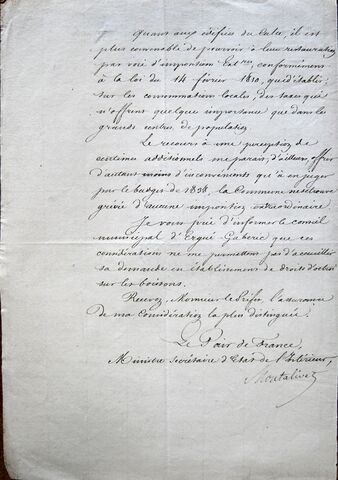 Quant aux édifices du Culte, il est
plus convenable de pourvoir à leur restauration
par voie d'imposition Extre, conformément
à la loi du 14 février 1810, que d'établir
sur les consommations locales, des taxes qui
n'offrent quelque importance que dans les
grands centres de population.
Le recours à une perception de
centimes additionnels me parait, d'ailleurs, offrir
d'autant moins d'inconvénients qu'à en juger
par le budget de 1838, la Commune ne se trouve
grévée d'aucune imposition extraordinaire.
Je vous prie d'informer le conseil
municipal d'Ergué Gaberic que ces
considérations ne me permettent pas d'accueillir
sa demande en établissement de droits d'octroi
sur les boissons.
Recevez, Monsieur le Préfet, l'assurance
de ma considération la plus distinguée.
Le Pair de France,
Ministre Secrétaire d'Etat de l'Intérieur,
Montalivet